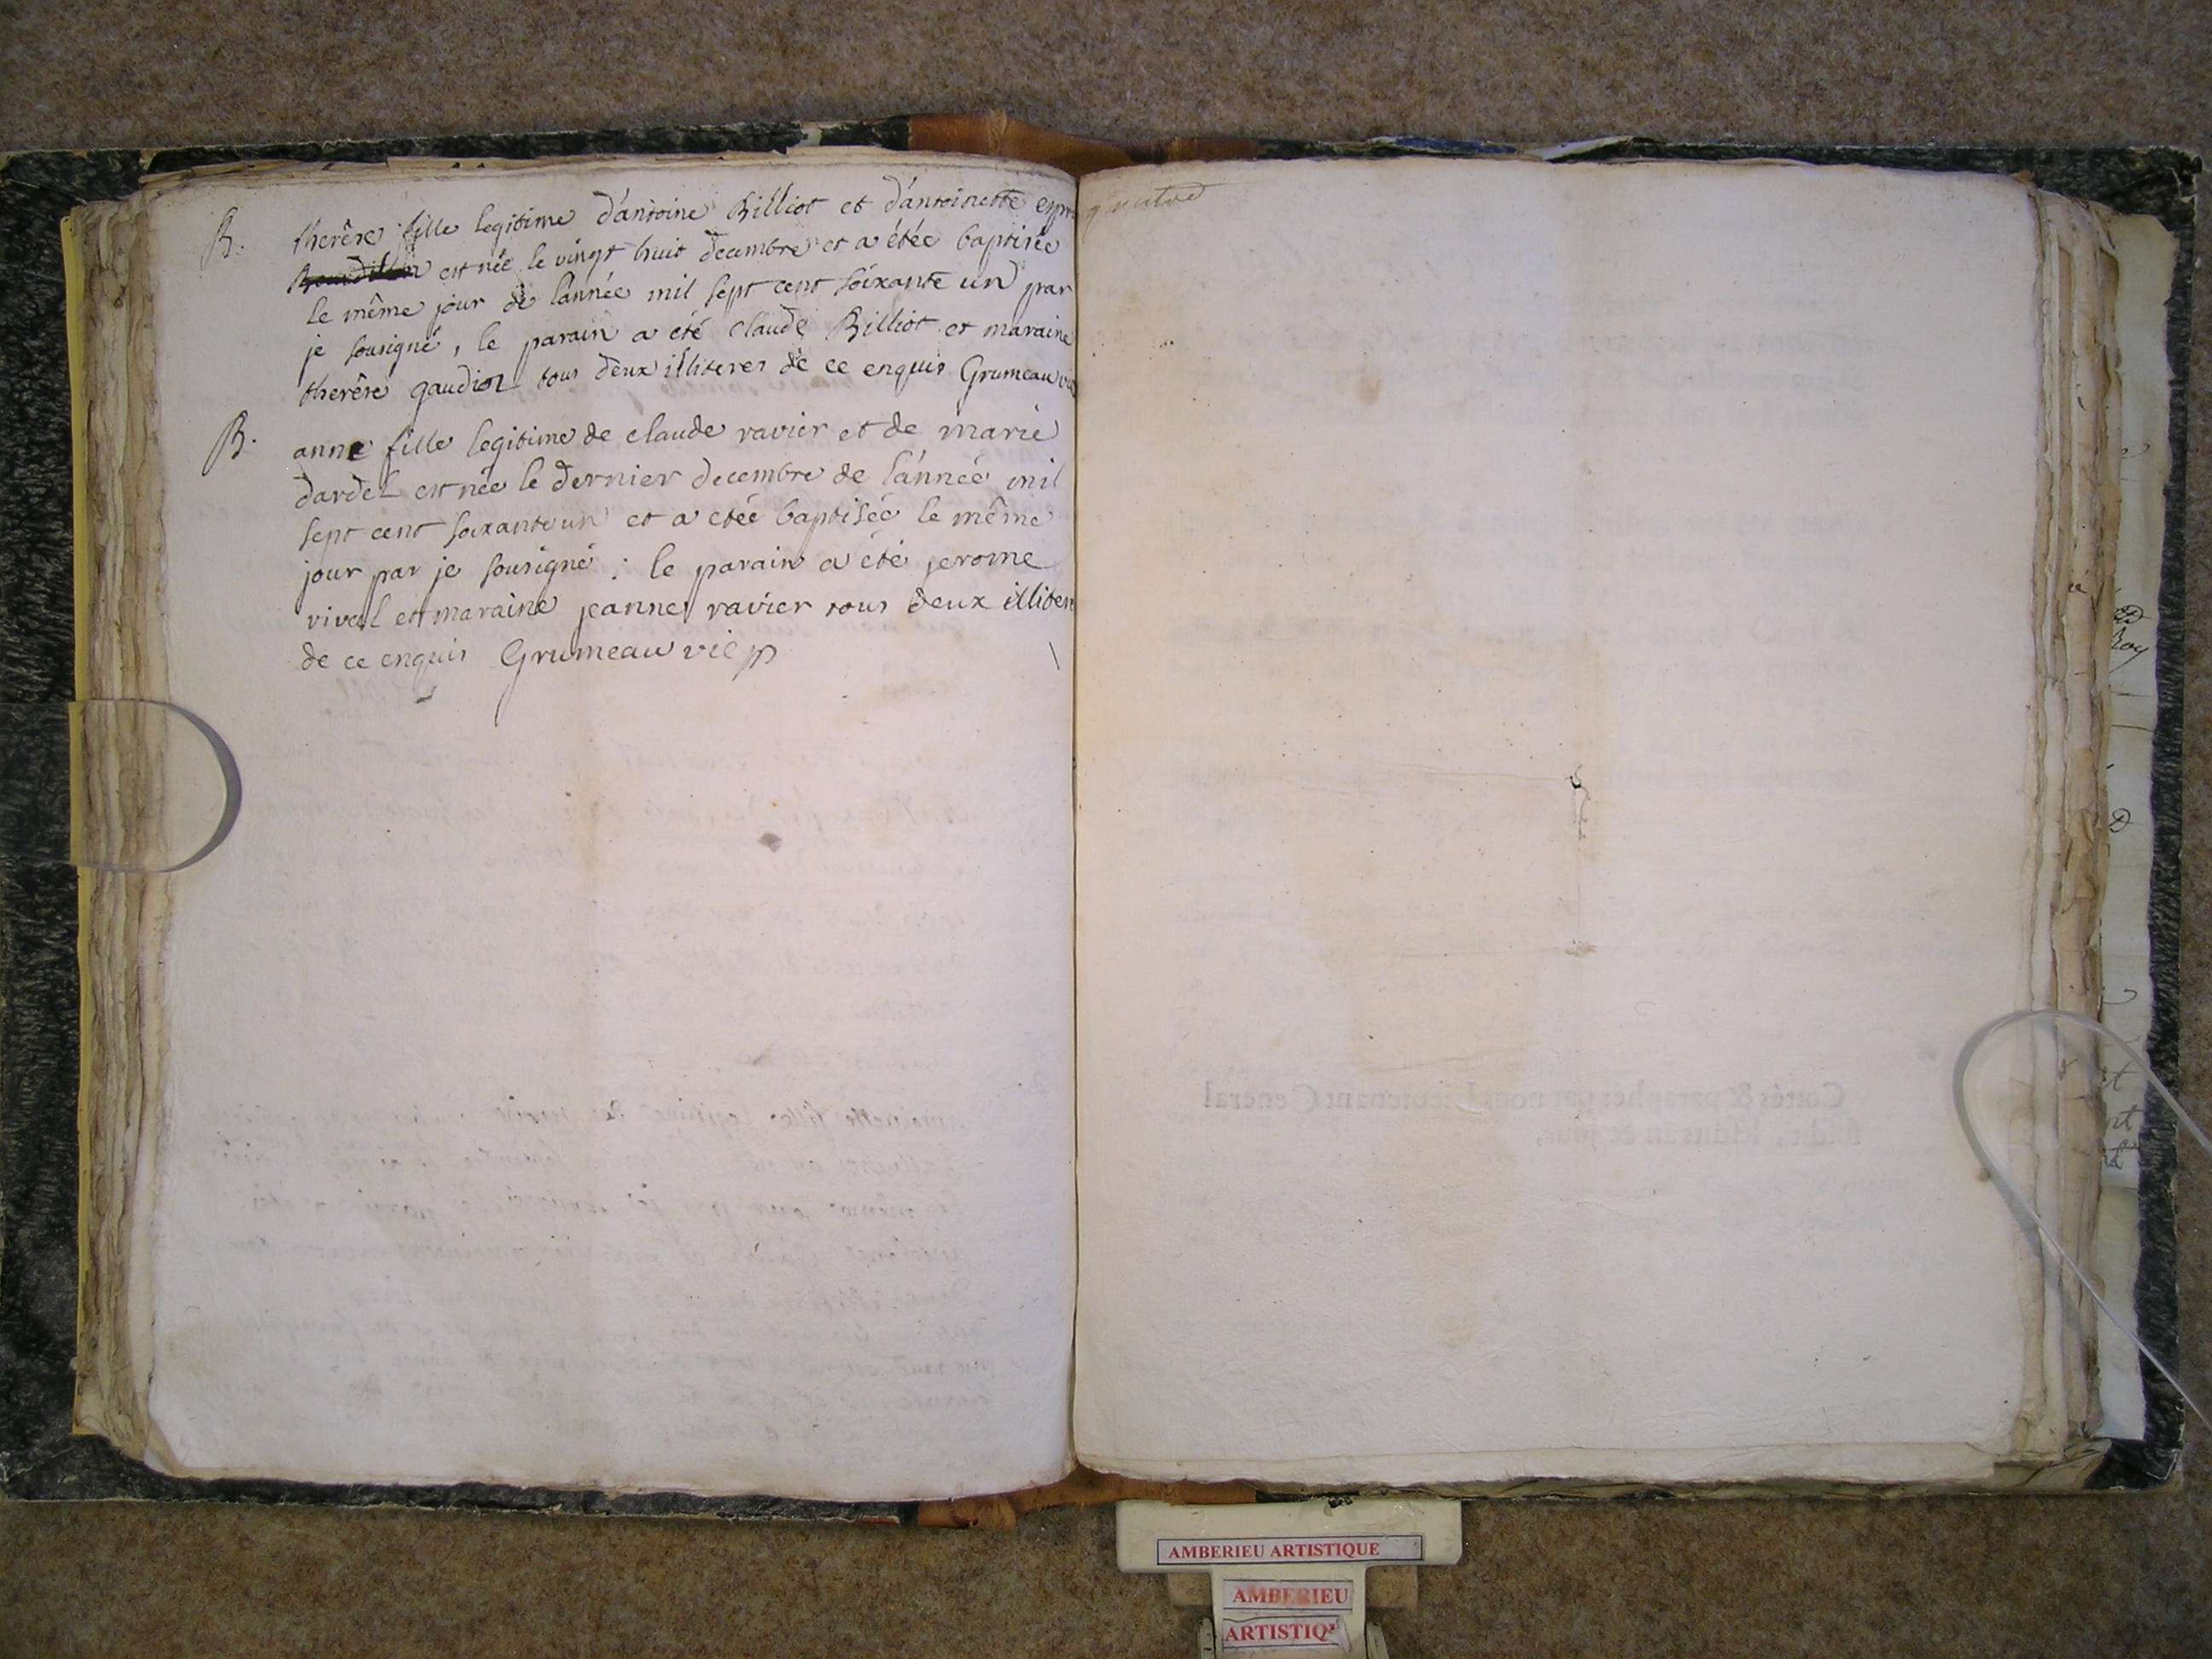 B. therêse fille legitime d'antoine Billiot et d'antoinette
est née le vingt huit decembre et a étée baptisée
le même jour de lánnée mil sept cent soixante un par
je sousigné, le parain a été claude Billiot et maraine
therêse gaudioz tous deux illiteres de ce enquis Grumeau vic
B. anne fille legitime de claude ravier et de marie
dardel est née le dernier decembre de lánnée mil
sept cent soixante un et a etée baptisée le même
jour par je sousigné ; le parain a été jerome
vival et maraine jeanne ravier tous deux illiter
de ce enquis Grumeau vic
Cottés & paraphés par nous Lieutenant General
AMBERIEU ARTISTIQUE
AMBERIEU
ARTISTIQ